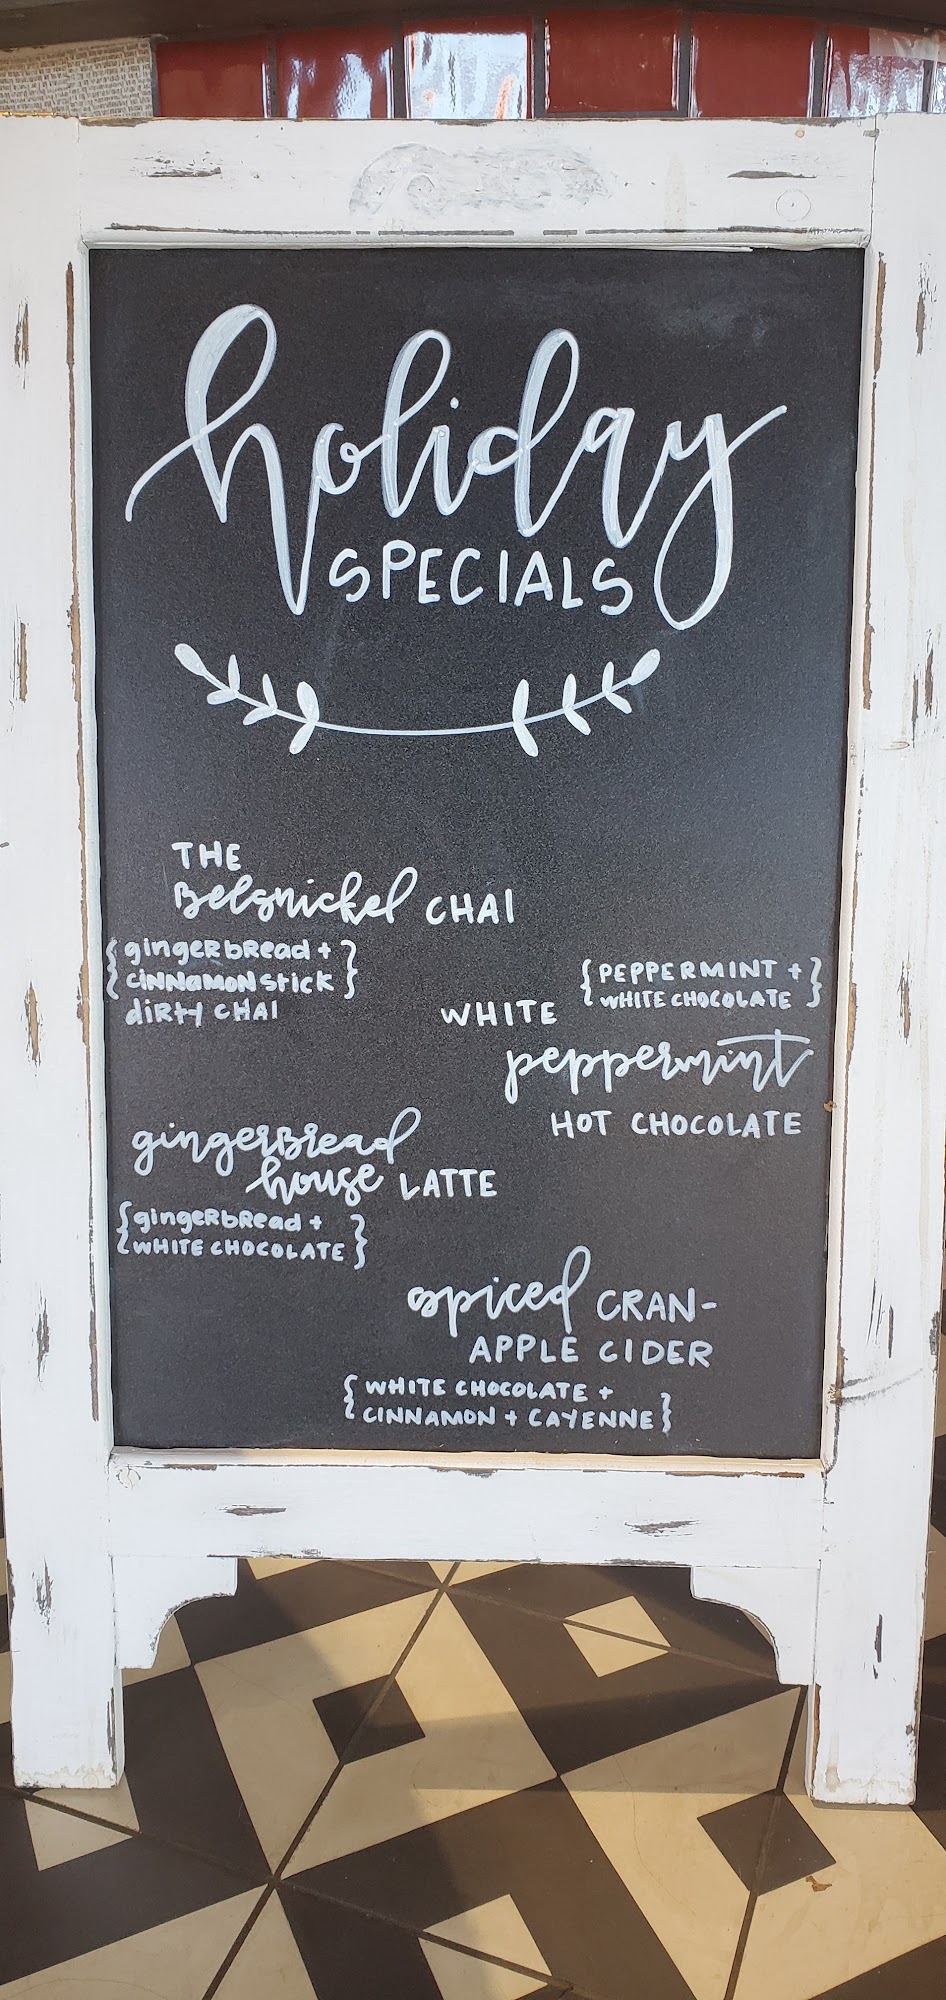 holiday
SPECIALS
THE
Belsnickel CHAI
{gingeRbRead +
ciNNamoN stick}
diRty CHAI
{PEPPERMINT +
WHITE CHOCOLATE}
WHITE
peppermint
HOT CHOCOLATE
gingerBread
house LATTE
{gingeRbRead +
WHITE CHOCOLATE}
spiced CRAN-
APPLE CIDER
{WHITE CHOCOLATE +
CINNAMON + CAYENNE}